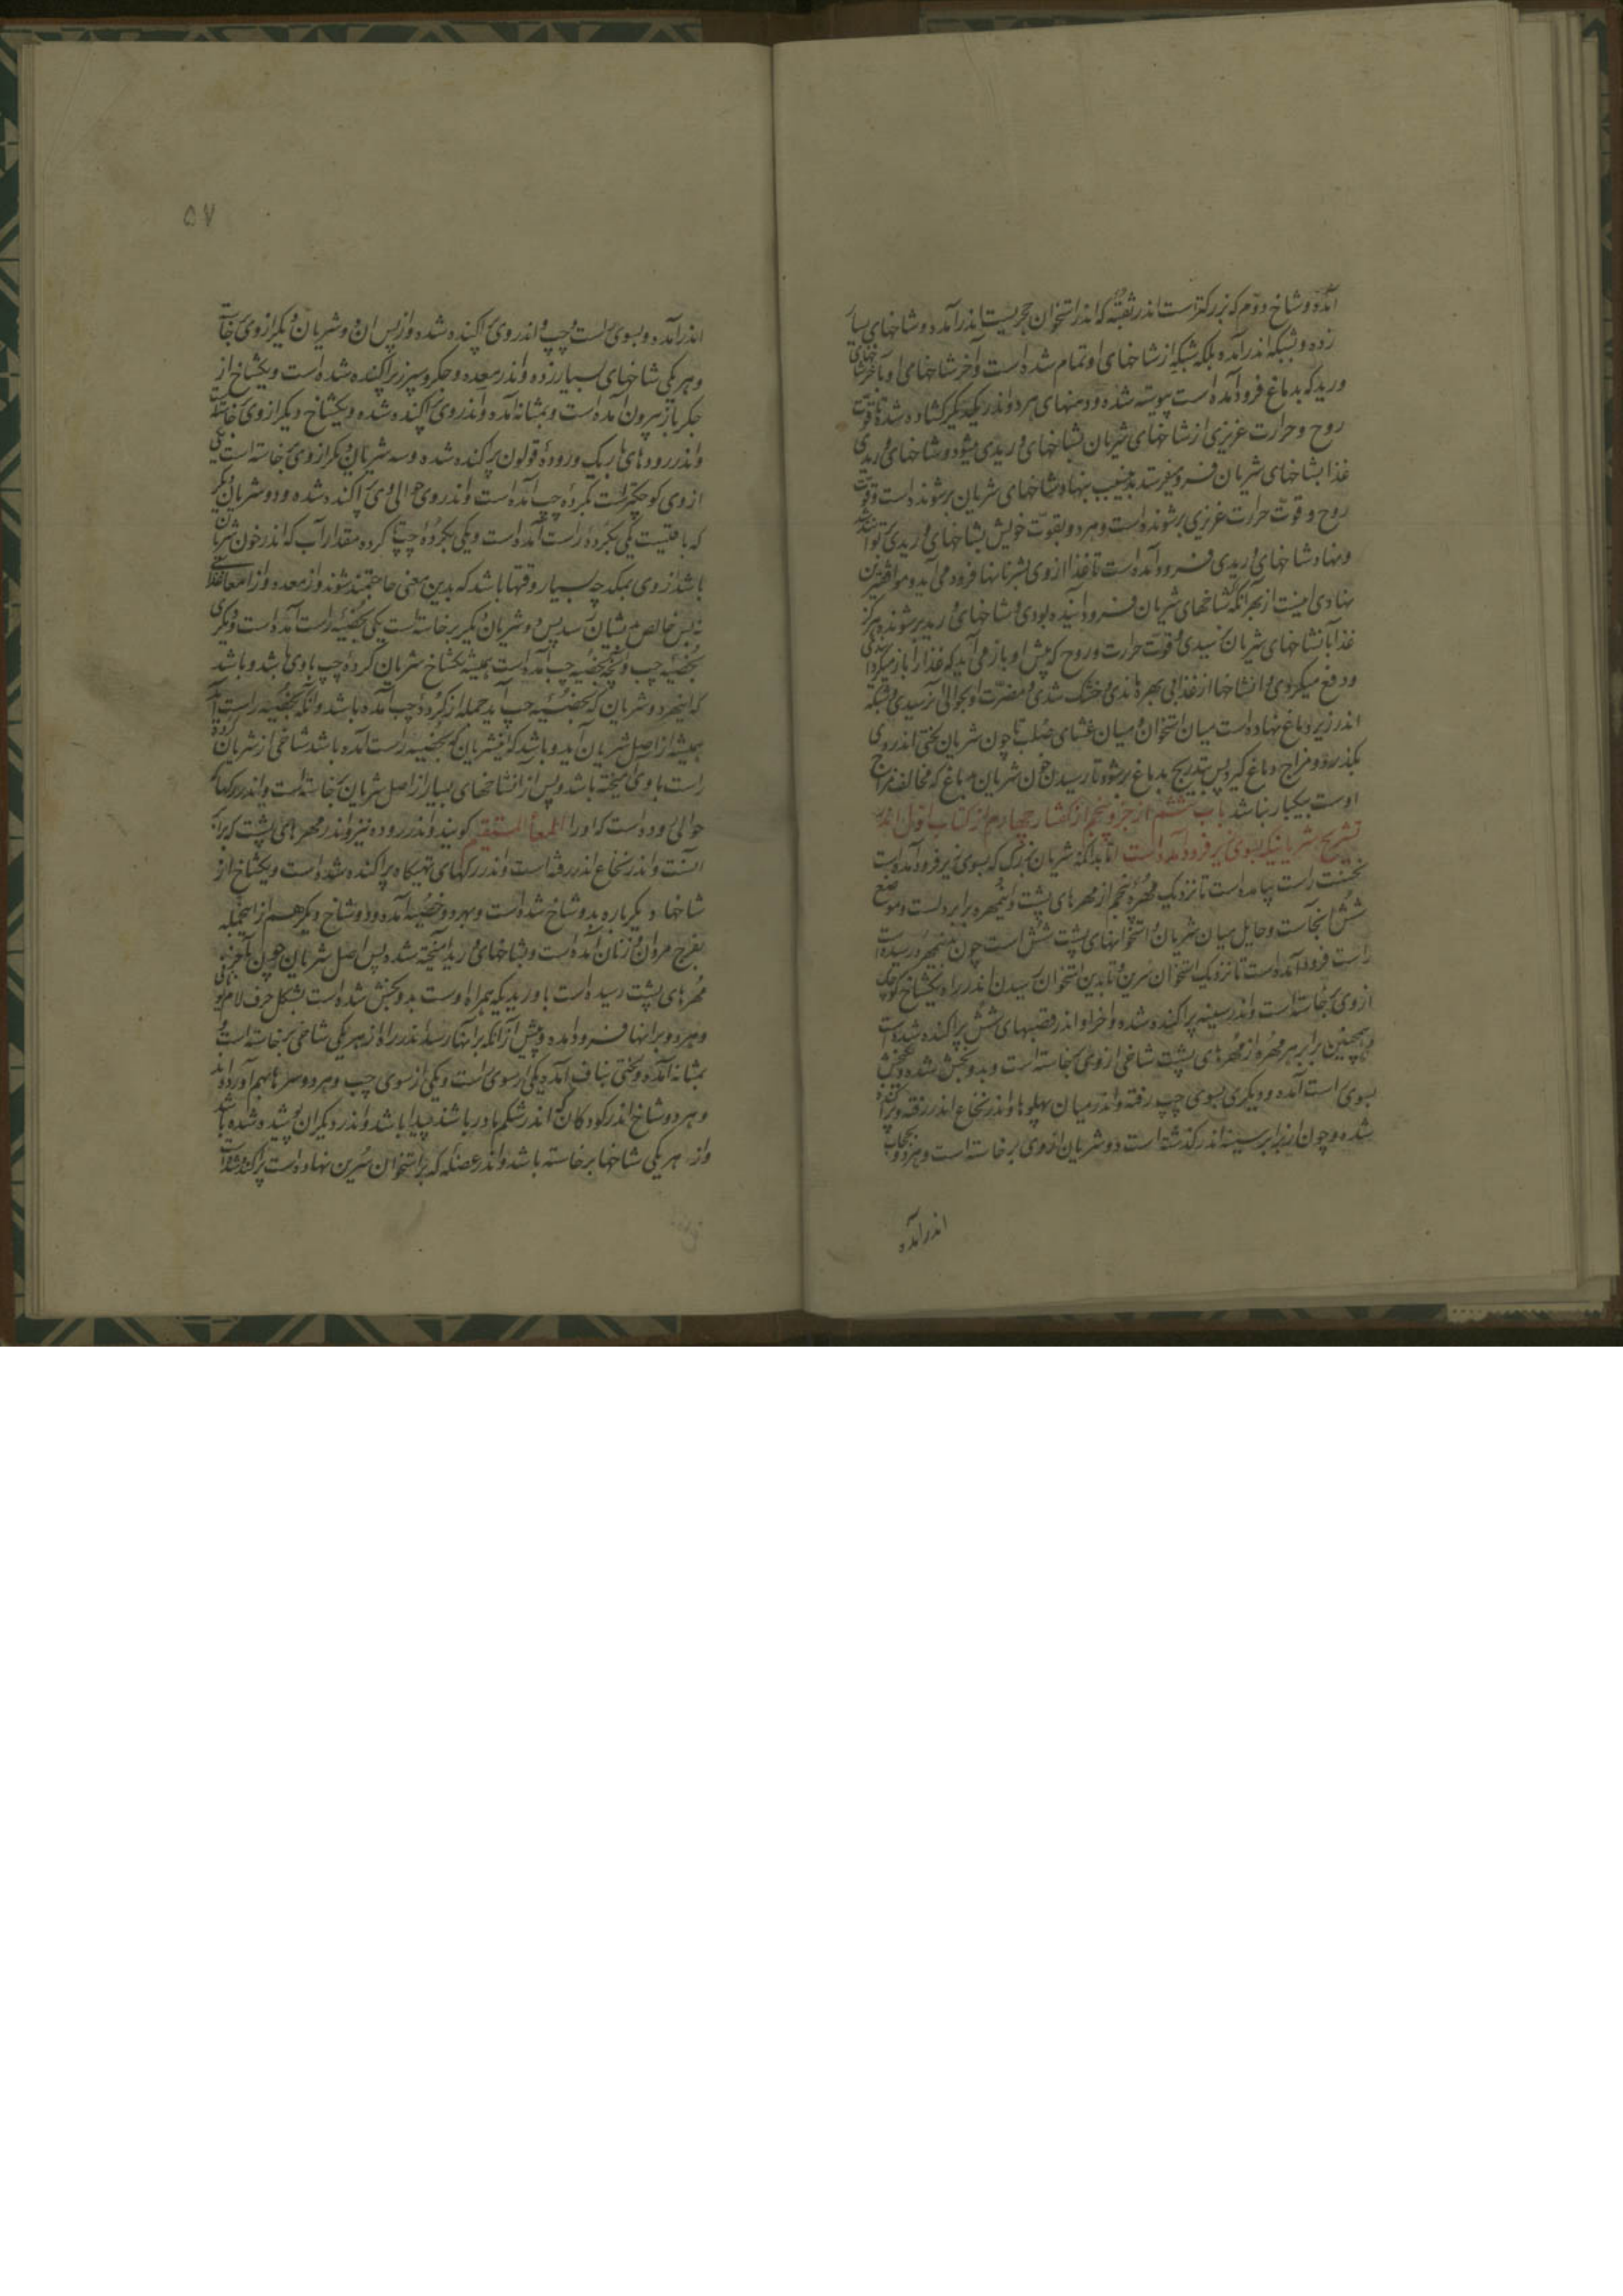 آمده و شاخ دوم که بزرکترست اندر ثقبه که اندر استخوان حجریست اندر آمده و شاخهای بسیار
زده و بشبکه اندر آمده بلکه شبکه از شاخهای او تمام شده است و آخر شاخهای او با آخر شاخهای
ورید که بدماغ فرود آمده است پیوسته شده و دهنهای هر دو اندر یکدیکر کشاده شده تا قوت
روح و حرارت غریزی از شاخهای شریان بشاخهای وریدی میشود و شاخهای وریدی
غذا بشاخهای شریان فرو میفرستد بدین سبب نهاد شاخهای شریان برشونده است و قوت
روح و قوت حرارت غریزی برشونده است و هر دو بقوت خویش بشاخهای وریدی توانند شد
و نهاد شاخهای وریدی فرود آمده است تا غذا از وی بشریانها فرود می آید و موافقترین
نهادی اینست از بهر آنکه شاخهای شریان فرود آینده بودی و شاخهای ورید برشونده هرکز
غذا بشاخهای شریان نرسیدی و قوت حرارت و روح که پیش او باز می آید که غذا را باز میکردانیدی
و دفع میکردی و آن شاخها از غذا بی بهره ماندی و خشک شدی و مضرت او بحوالی او رسیدی و شبکه
اندر زیر دماغ نهاده است میان استخوان و میان غشای صلب تا چون شریان لختی اندر وی
بکذرد و مزاج دماغ کیرد پس بتدریج بدماغ برشود تا رسیدن خون شریان بدماغ که مخالف مزاج
اوست بیکبار نباشد باب ششم از جزو پنجم از کفتار چهارم از کتاب اول اندر
تشریح شریانیکه بسوی زیر فرود آمده است اما بداند که شریان بزرک که بسوی زیر فرود آمده است
نخست راست بیامده است تا نزدیک مهره پنجم از مهرهای پشت و این مهره برابر دلست و موضع
شش آنجاست و حایل میان شریان و استخوانهای پشت شش است چون بدین مهره رسیده است
راست فرود آمده است تا نزدیک استخوان سرین و تا بدین استخوان رسیدن اندر راه یکشاخ کوچک
از وی برخاسته است و اندر سینه پراکنده شده و آخر او اندر قصبهای شش پراکنده شده است
و همچنین برابر هر مهره از مهرهای پشت شاخی از وی برخاسته است و بدو بخش شده و یکبخش
بسوی راست آمده و دیکری بسوی چپ رفته و اندر میان پهلوها و اندر نخاع اندر رفته و پراکنده
شده و چون از برابر سینه اندر کذشته است دو شریان از وی برخاسته است و هر دو بحجاب
اندر آمده
۵۷
اندر آمده و بسوی راست و چپ اندر وی پراکنده شده و از پس آن دو شریان دیکر از وی خاسته
و هر یکی شاخهای بسیار زده و اندر معده و جکر و سپرز پراکنده شده است و یکشاخ از
جکر باز بیرون آمده است و بمثانه آمده و اندر وی پراکنده شده و یکشاخ دیکر از وی خاسته است
و اندر رودهای باریک و روده قولون پراکنده شده و سه شریان دیکر از وی خاسته است یکی
از وی کوچکترست بکرده چپ آمده است و اندر وی و حوالی وی پراکنده شده و دو شریان دیکر
که باقیست یکی بکرده راست آمده است و یکی بکرده چپ تا کرده مقدار آب که اندر خون شریان
باشد از وی بمکد چه بسیار وقتها باشد که بدین معنی حاجتمند شوند و از معده و از امعا غذائی
نه بس خالص بایشان رسد پس دو شریان دیکر برخاسته است یکی بخصیه راست آمده است و دیکری
بخصیه چپ و آنچه بخصیه چپ آمده است همیشه یکشاخ شریان کرده چپ با وی باشد و باشد
که این هر دو شریان که بخصیه چپ آید جمله از کرده چپ آمده باشد و آنکه بخصیه راست آید
همیشه از اصل شریان آید و باشد که این شریان که بخصیه راست آمده باشد شاخی از شریان کرده
راست با وی آمیخته باشد و پس از این شاخهای بسیار از اصل شریان برخاسته است و اندر رکها
حوالی روده است که او را المعاء المستقیم کویند و اندر روده نیز و اندر مهرهای پشت که برابر
آنست و اندر نخاع اندر رفته است و اندر رکهای تهیکاه پراکنده شده است و یکشاخ از
شاخها دیکر باره بدو شاخ شده است و بهر دو خصیه آمده و دو شاخ دیکر هم از اینجمله
بفرج مردان و زنان آمده است و بشاخهای ورید آمیخته شده پس اصل شریان چون بآخرین
مهرهای پشت رسیده است با وریدیکه همراه اوست بدو بخش شده است بشکل حرف لام یونانی
و هر دو برانها فرود آمده و پیش از آنکه برانها رسد اندر راه از هر یکی شاخی برخاسته است و
بمثانه آمده و لختی بناف آمده یکی از سوی راست و یکی از سوی چپ و هر دو سرها بهم آورده اند
و هر دو شاخ اندر کودکان که اندر شکم مادر باشند پیدا باشد و اندر دیکران پوشیده شده باشد
و از هر یکی شاخها برخاسته باشد و اندر عضله که بر استخوان سرین نهاده است پراکنده شده است